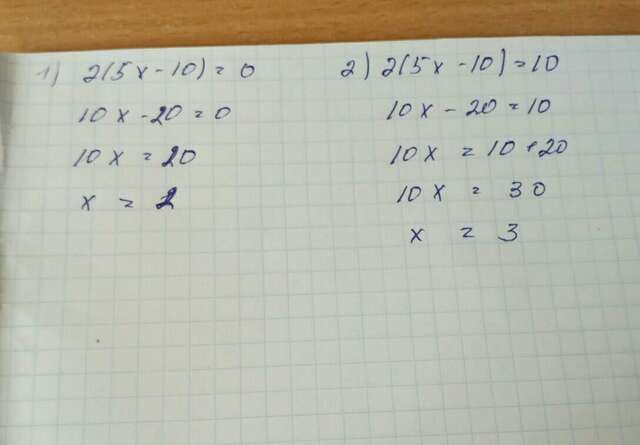 1) 2(5x-10)=0
10x-20=0
10x=20
x=2
2) 2(5x-10)=10
10x-20=10
10x=10+20
10x=30
x=3